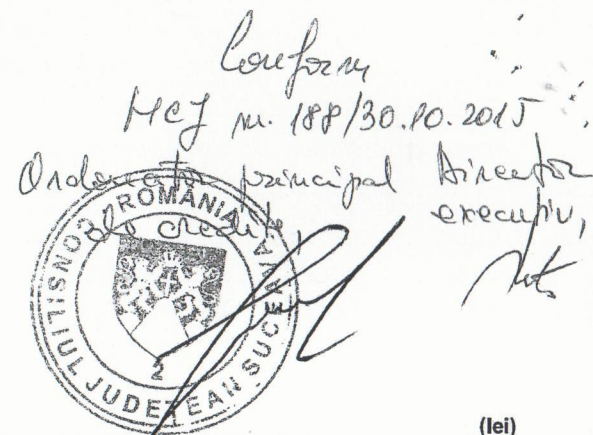 Conform
HCJ nr. 188/30.10.2015
Ordonator principal Director
de credite executiv,
ROMÂNIA
CONSILIUL JUDEȚEAN SUCEAVA
2
(lei)